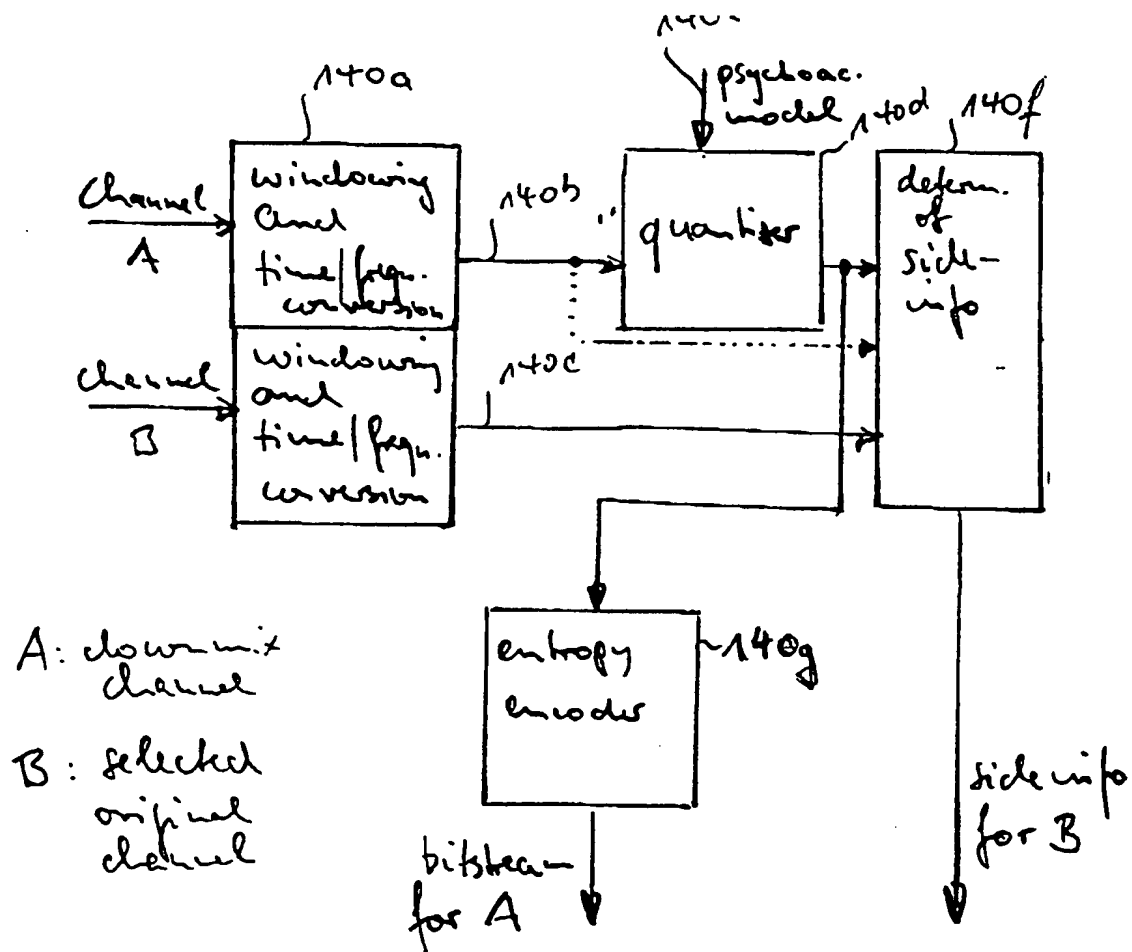 140a
psychoac.
model
140d
140f
Channel
A
windowing
and
time/frequ.
conversion
140b
quantizer
determ.
of
side-
info
channel
B
windowing
and
time/frequ.
conversion
140c
entropy
encoder
140g
A: downmix
channel
B: selected
original
channel
bitstream
for A
side info
for B